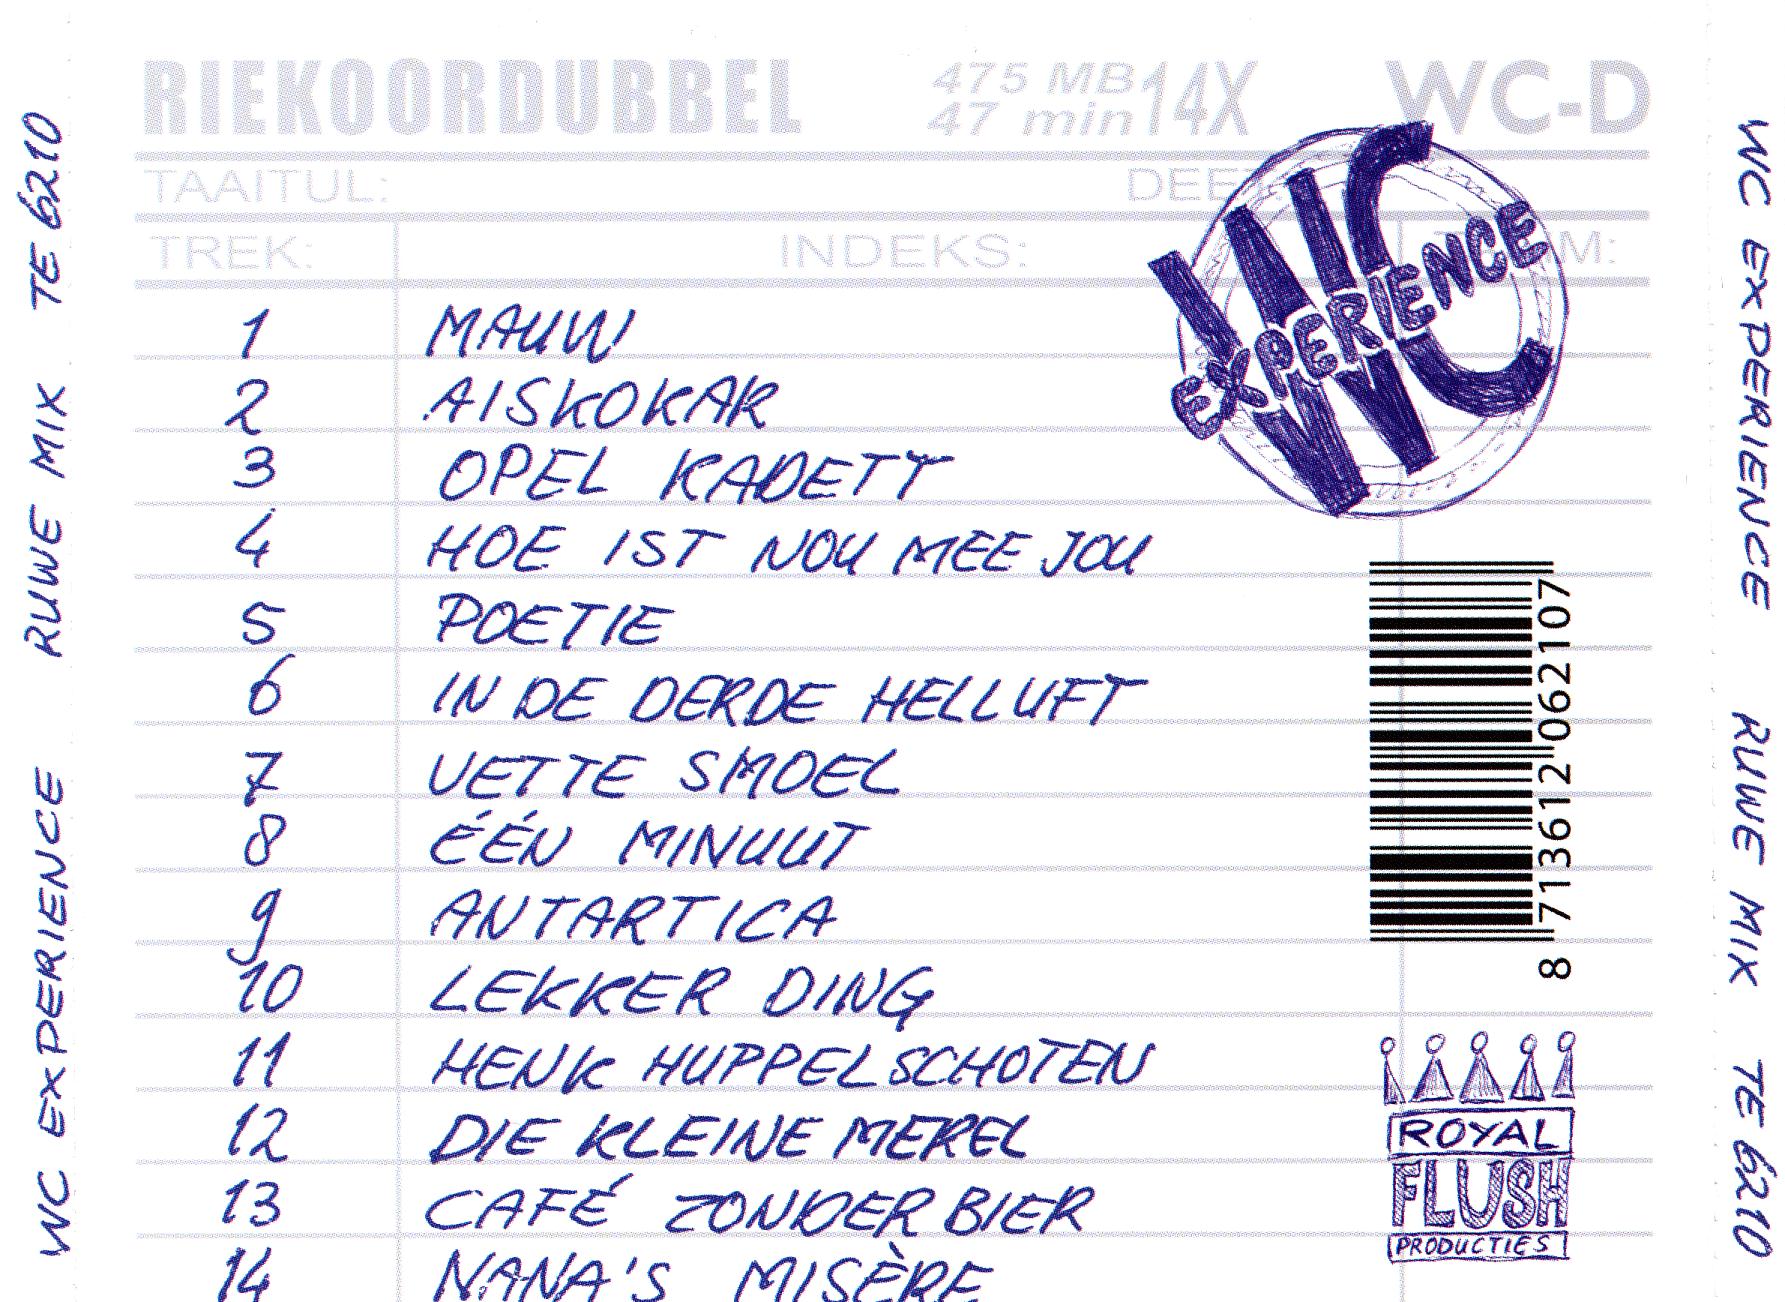 RIEKOORDUBBEL 475 MB 47 min 14X WC-D
TAAITUL:
TREK: INDEKS:
WC EXPERIENCE
1 MAUW
2 AISKOKAR
3 OPEL KADETT
4 HOE IST NOU MEE JOU
5 POETIE
6 IN DE DERDE HELLUFT
7 VETTE SMOEL
8 ÉÉN MINUUT
9 ANTARTICA
10 LEKKER DING
11 HENK HUPPELSCHOTEN
12 DIE KLEINE MEREL
13 CAFÉ ZONDER BIER
14 NANA'S MISÈRE
8 713612 062107
ROYAL
FLUSH
PRODUCTIES
WC EXPERIENCE RUWE MIX TE 6210
WC EXPERIENCE RUWE MIX TE 6210